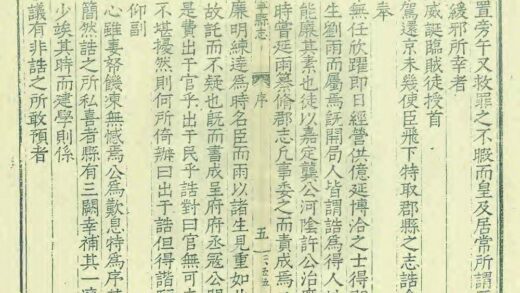 置旁午又救罪之不暇而皇及居常所謂
緩邪所幸者
威誕臨賊徒授首
駕還京未幾使臣飛下特取郡縣之志誥
奉
無任欣躍即日經營供億延博洽之士得
生劉雨而屬焉既開局人皆謂誥為得人
能廉其素也徒以嘉定龔公河陰許公治
時嘗延雨纂脩郡志凡事委之而責成焉
序 五
廉明練達為時名臣而雨以諸生見重如此
故託而不疑也既而書成呈府府丞寇公
是費出于官乎出于民乎誥對曰官無可
不堪擾然則何所倚辦曰出于誥但得諧
仰副
心雖妻孥餓凍無憾焉公為歎息特為序
簡然誥之所私喜者縣有三闕幸補其一
少竢其時而建學則係
議有非誥之所敢預者